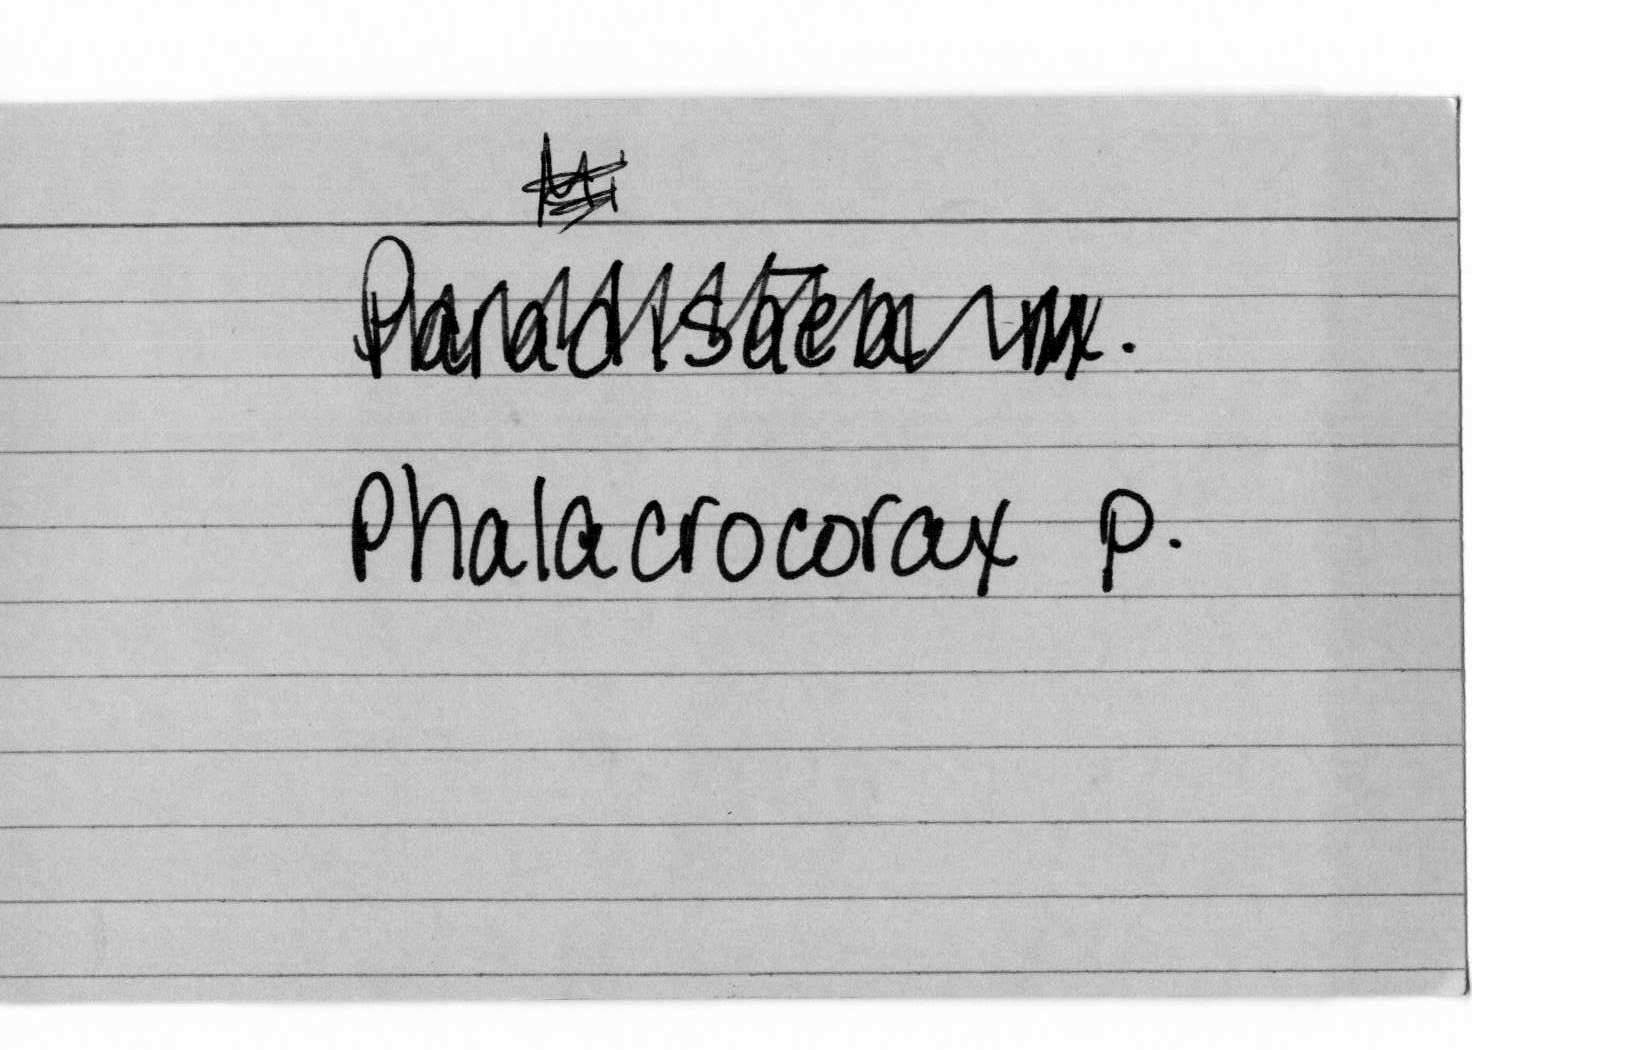 Paradisaea
Phalacrocorax p.